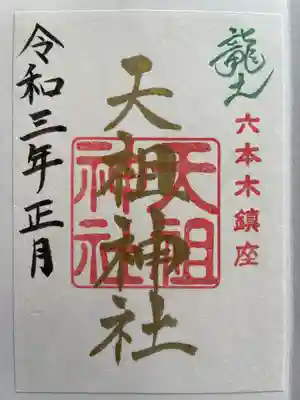 龍土
六本木鎮座
天祖神社
天祖
神社
令和三年正月